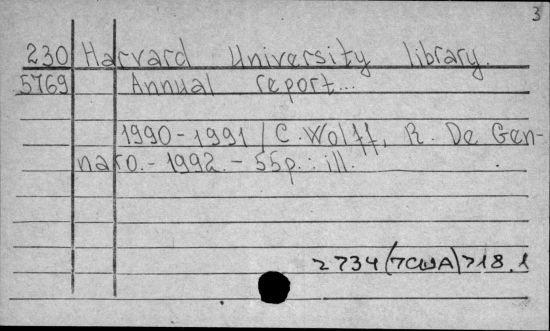 3
230 Harvard University library.
5769 Annual report...
1990-1991 / C. Wolff, R. De Gen-
naro.- 1992.- 55p.: ill.
2734(7США)718.1